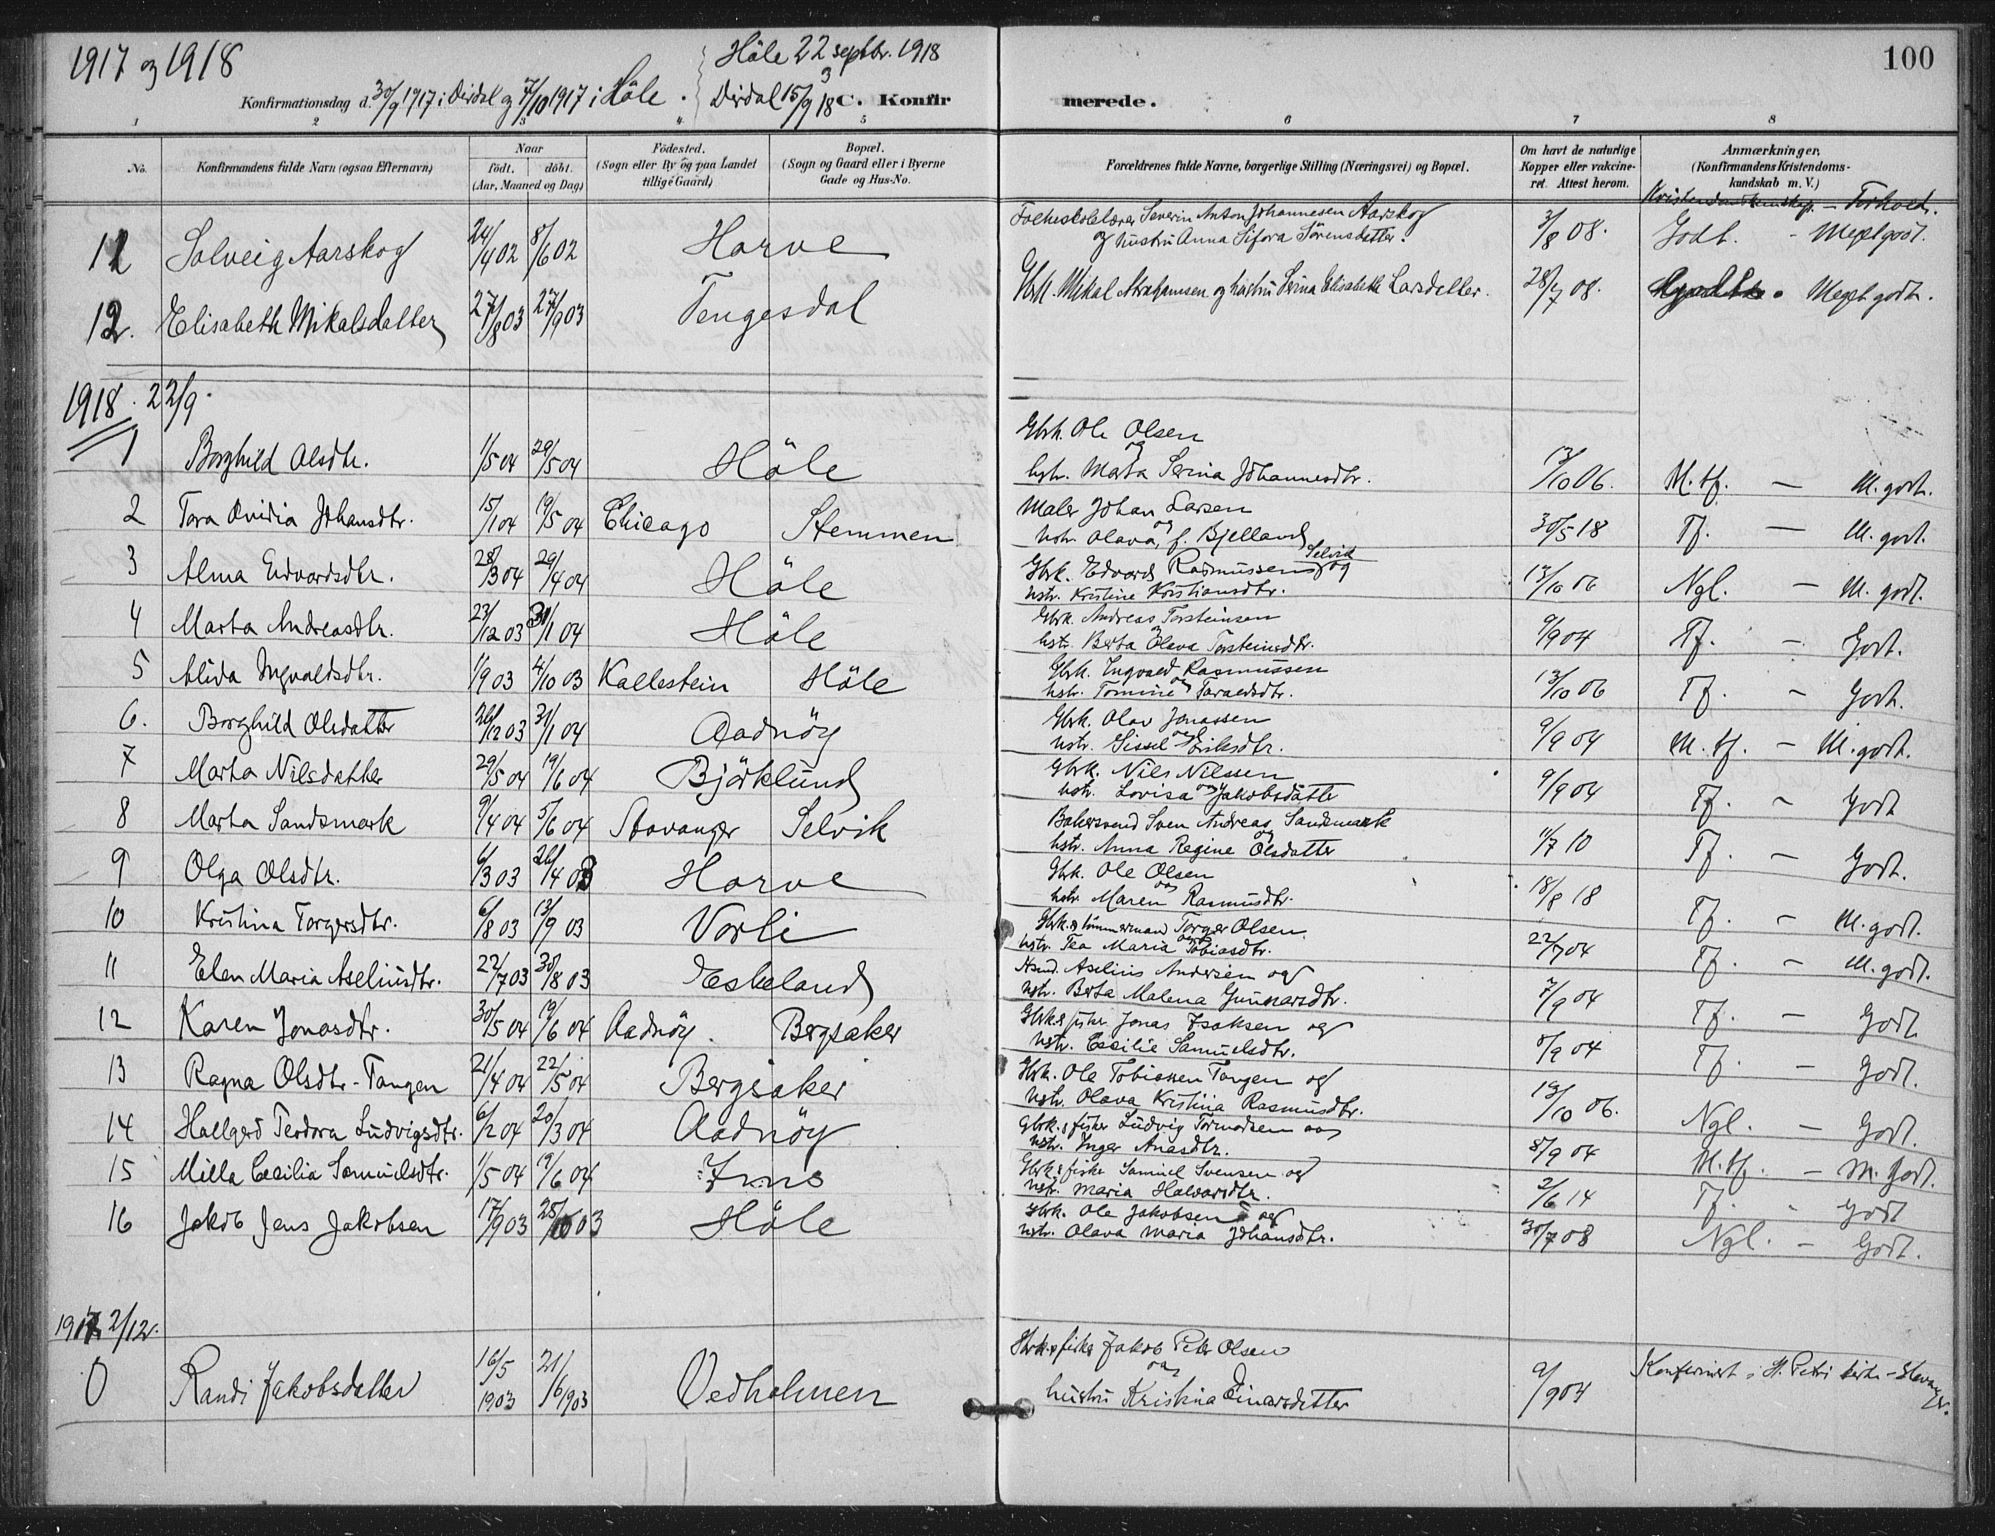 1917 og 1918
Höle 22 septbr. 1918
100
Konfirmationsdag d. 30/9 1917 i Dirdal og 7/10 1917 i Höle. Dirdal 15/9 18 C. Konfirmerede.
1 2 3 4 5 6 7 8
No. Konfirmandens fulde Navn (ogsaa Efternavn) Naar født. døbt. (Aar, Maaned og Dag) Fødested. (Sogn eller By og paa Landet tillige Gaard) Bopæl. (Sogn og Gaard eller i Byerne Gade og Hus-No. Forældrenes fulde Navne, borgerlige Stilling (Næringsvei) og Bopæl. Om havt de naturlige Kopper eller vakcineret. Attest herom. Anmærkninger. (Konfirmandens Kristendomskundskab m. V.)
Kristendomskundskap. — Forhold.
11 Solveig Aarskog 24/4 02 8/6 02 Horve Folkeskolelærer Severin Anton Johannesen Aarskog 3/8 08. Godt. - Meget godt.
og hustru Anna Sifora Sörensdatter.
12. Elisabeth Mikalsdatter 27/8 03 27/9 03 Tengesdal Gbrk. Mikal Abrahamsen og hustru Serina Elisabeth Larsdatter. 28/7 08. Meget godt.
1918. 22/9.
1 Borghild Olsdtr. 1/5 04 29/5 04 Höle Gbrk. Ole Olsen og
hstr. Marta Serina Johannesdtr. 13/10 06. M. tf. — M. godt.
2 Tora Ovidia Johansdtr. 15/1 04 19/5 04 Chicago Stemmen Maler Johan Larsen og
hstr. Olava, f. Bjelland 30/5 18 Tf. — M. godt.
3 Alma Edvardsdtr. 28/3 04 29/4 04 Höle Gbrk. Edvard Rasmussen Selvik og
hstr. Kristine Kristiansdtr. 13/10 06 Ngl. — M. godt.
4 Marta Andreasdtr. 23/12 03 31/1 04 Höle Gbrk. Andreas Torsteinsen og
hstr. Berta Olava Torsteinsdtr. 9/9 04 Tf. — Godt.
5 Alida Ingvaldsdtr. 1/9 03 4/10 03 Kallestein Höle Gbrk. Ingvald Rasmussen og
hstr. Tomine Taraldsdtr. 13/10 06 Tf. - Godt.
6. Borghild Olsdatter 26/12 03 31/1 04 Aadnöy Gbrk. Olav Jonassen og
hstr. Sissel Eriksdtr. 9/9 04 M. tf. - M. godt.
7 Marta Nilsdatter 29/5 04 19/6 04 Björklund Gbrk. Nils Nilssen og
hstr. Lovisa Jakobsdatter 9/9 04 Tf. - Godt
8 Marta Sandsmark 9/4 04 5/6 04 Stavanger Selvik Bakersvend Sven Andreas Sandsmark og
hstr. Anna Regine Olsdatter 11/7 10 Tf. — Godt.
9 Olga Olsdtr. 6/3 03 26/4 03 Horve Gbrk. Ole Olsen og
hstr. Maren Rasmusdtr. 18/8 18 Tf. - M. godt.
10 Kristina Torgersdtr. 6/8 03 13/9 03 Vorli Gbrk. & tömmermand Torger Olsen og
hstr. Tea Maria Tobiasdtr. 22/7 04 Tf. - M. godt.
11 Elen Maria Aseliusdtr. 22/7 03 30/8 03 Eskeland Hsmd. Aselius Andersen og
hstr. Berta Malena Gunnarsdtr. 7/9 04 Tf. — Godt
12 Karen Jonasdtr. 30/5 04 19/6 04 Aadnöy. Bergsaker Gbrk. & fisker Jonas Isaksen og
hstr. Cecilie Samuelsdtr. 8/9 04 Tf. - Godt.
13 Ragna Olsdtr-Tangen 21/4 04 22/5 04 Bergsaker Gbrk. Ole Tobiassen Tangen og
hstr. Olava Kristina Rasmusdtr. 13/10 06. Ngl. — Godt.
14 Hallgerd Teodora Ludvigsdtr. 6/2 04 20/3 04 Aadnöy Gbrk. & fisker Ludvig Tormodsen og
hstr. Inger Anasdtr. 8/9 04 M. tf. — M. godt.
15 Milla Cecilia Samuelsdtr. 1/5 04 19/6 04 Gbrk & fisker Samuel Svensen og
hstr. Maria Halvorsdtr. 2/6 14 Tf. - Godt
16 Jakob Jens Jakobsen 17/9 03 25/10 03 Höle Gbrk. Ole Jakobsen og
hstr. Olava Maria Johansdtr. 30/7 08 Ngl. — Godt.
1917 2/12.
0 Randi Jakobsdatter 16/5 1903 21/6 1903 Vedholmen Gbrk. & fisker Jakob Peter Olsen og
hustru Kristina Einarsdatter 9/9 04 Konfirmert i St. Petri kirke - Stavanger.